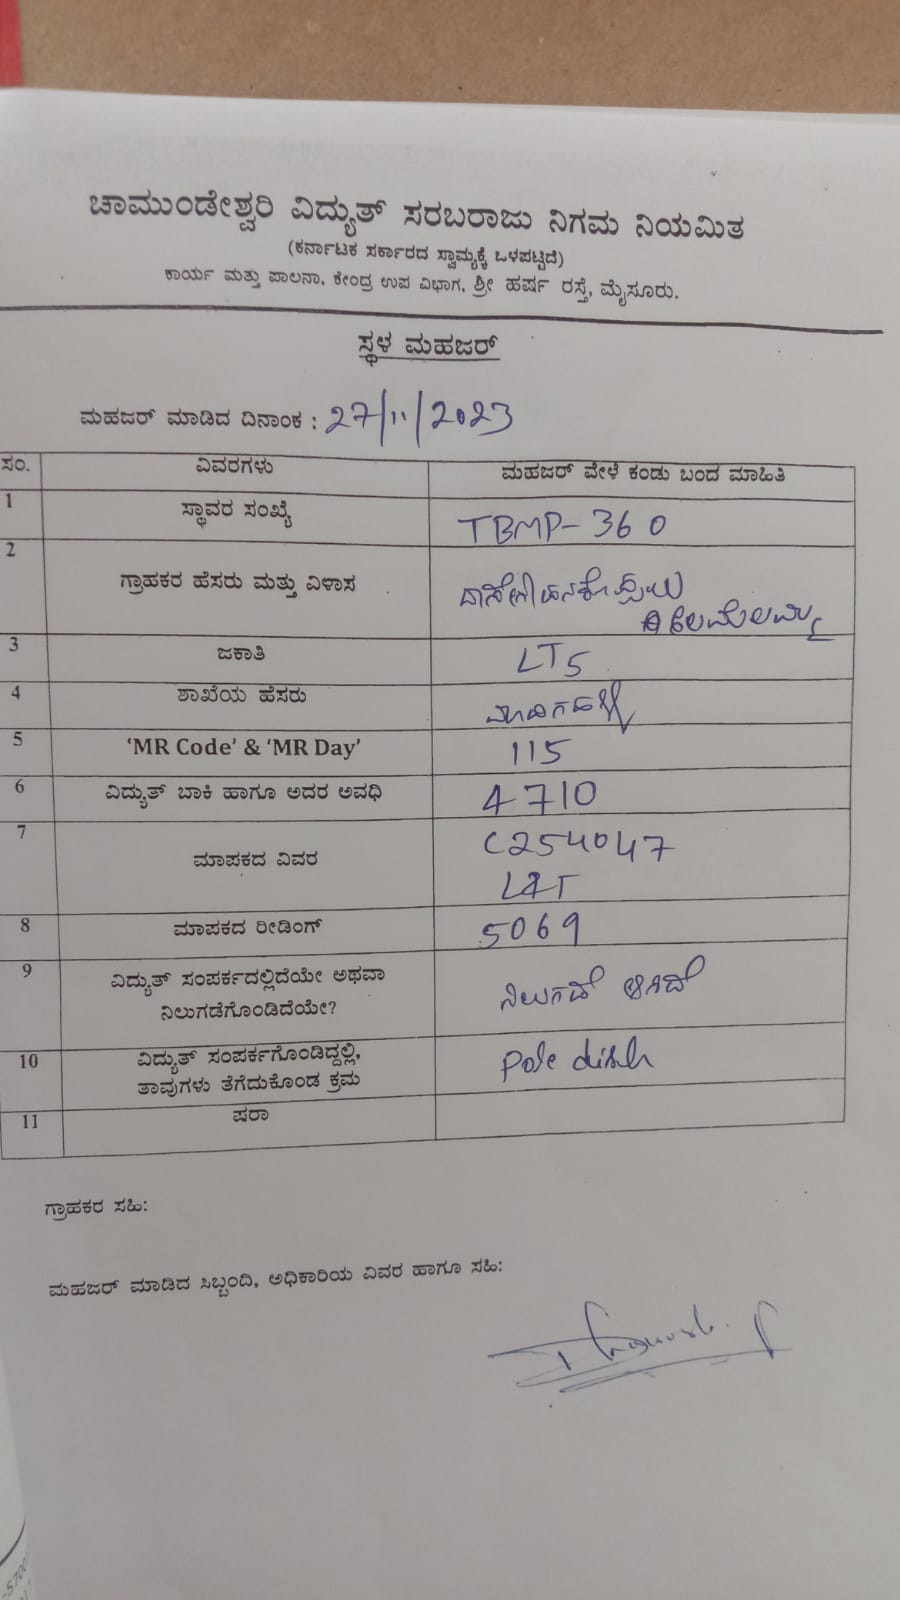 ಚಾಮುಂಡೇಶ್ವರಿ ವಿದ್ಯುತ್ ಸರಬರಾಜು ನಿಗಮ ನಿಯಮಿತ
(ಕರ್ನಾಟಕ ಸರ್ಕಾರದ ಸ್ವಾಮ್ಯಕ್ಕೆ ಒಳಪಟ್ಟಿದೆ)
ಕಾರ್ಯ ಮತ್ತು ಪಾಲನಾ, ಕೇಂದ್ರ ಉಪ ವಿಭಾಗ, ಶ್ರೀ ಹರ್ಷ ರಸ್ತೆ, ಮೈಸೂರು.
ಸ್ಥಳ ಮಹಜರ್
ಮಹಜರ್ ಮಾಡಿದ ದಿನಾಂಕ : 27/11/2023
ಸಂ. ವಿವರಗಳು ಮಹಜರ್ ವೇಳೆ ಕಂಡು ಬಂದ ಮಾಹಿತಿ
1 ಸ್ಥಾವರ ಸಂಖ್ಯೆ TBMP-360
2 ಗ್ರಾಹಕರ ಹೆಸರು ಮತ್ತು ವಿಳಾಸ
3 ಜಕಾತಿ LT5
4 ಶಾಖೆಯ ಹೆಸರು
5 ‘MR Code’ & ‘MR Day’ 115
6 ವಿದ್ಯುತ್ ಬಾಕಿ ಹಾಗೂ ಅದರ ಅವಧಿ 4710
7 ಮಾಪಕದ ವಿವರ C254047
L&T
8 ಮಾಪಕದ ರೀಡಿಂಗ್ 5069
9 ವಿದ್ಯುತ್ ಸಂಪರ್ಕದಲ್ಲಿದೆಯೇ ಅಥವಾ
ನಿಲುಗಡೆಗೊಂಡಿದೆಯೇ? ನಿಲುಗಡೆ ಆಗಿದೆ
10 ವಿದ್ಯುತ್ ಸಂಪರ್ಕಗೊಂಡಿದ್ದಲ್ಲಿ,
ತಾವುಗಳು ತೆಗೆದುಕೊಂಡ ಕ್ರಮ Pole
11 ಷರಾ
ಗ್ರಾಹಕರ ಸಹಿ:
ಮಹಜರ್ ಮಾಡಿದ ಸಿಬ್ಬಂದಿ, ಅಧಿಕಾರಿಯ ವಿವರ ಹಾಗೂ ಸಹಿ: